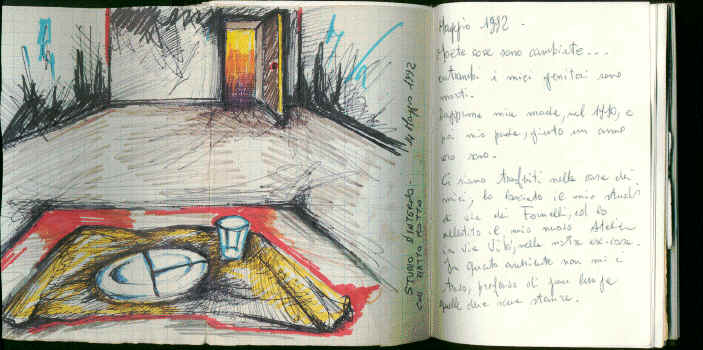 STUDIO D'INTERNO - 14 Maggio 1992
CON PIATTO ROTTO
Maggio 1992 -
Molte cose sono cambiate...
entrambi i miei genitori sono
morti.
Dapprima mia madre, nel 1990, e
poi mio padre, giusto un anno
sono.
Ci siamo trasferiti nella casa dei
miei, ho lasciato il mio studio
di via dei Fornelli, ed ho
allestito il mio nuovo Atelier
in via Vibi, nella nostra ex-casa.
In questo ambiente non mi ci
trovo, di gran lunga
quelle due stanze.